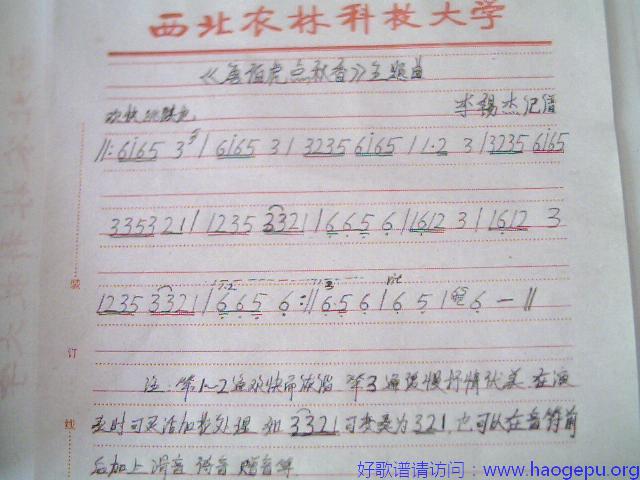 西北农林科技大学
《唐伯虎点秋香》主题曲
欢快 跳跃
李锡杰记谱
‖: 6i65 3 | 6i65 3 | 3235 6i65 | 11·2 3 | 3235 6i65
335321 | 1235 3321 | 6656 | 1612 3 | 1612 3
1235 3321 | 665 6 :‖ 656 | 6 5 | 6 — ‖
1-2
3
装
订
线
注: 第1-2遍欢快而诙谐 第3遍缓慢抒情优美 在演
奏时可灵活加花处理 如 3321 可变奏为 321, 也可以在音符前
后加上滑音 倚音 赠音等
好歌谱请访问：www.haogepu.org